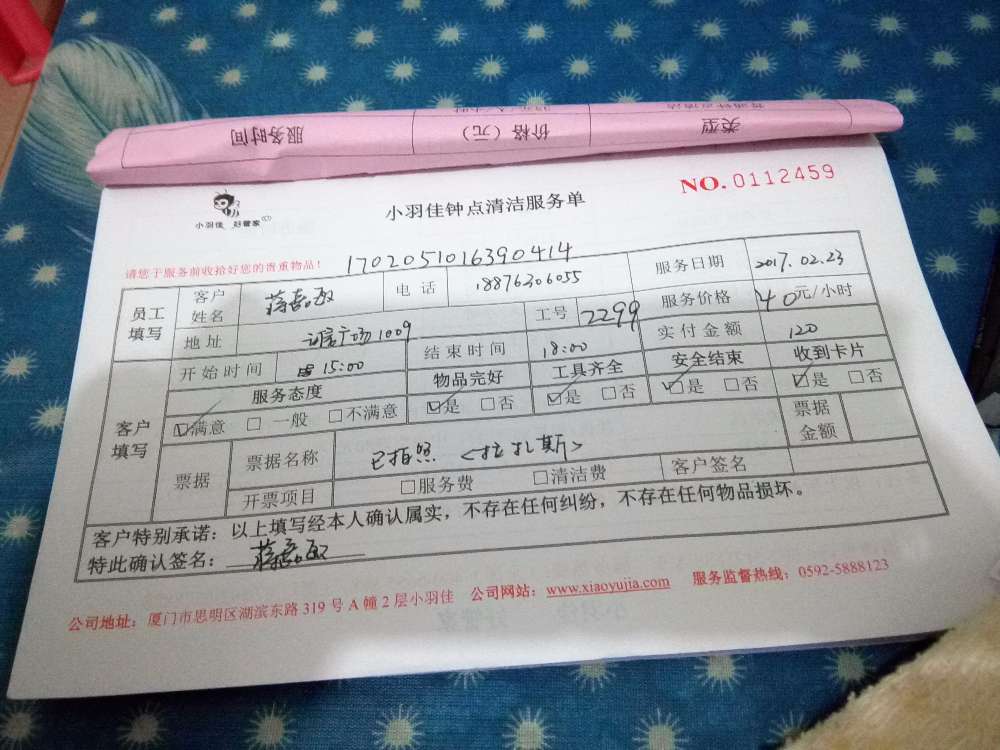 服务时间 价格（元） 类型
NO. 0112459
小羽佳 好管家
小羽佳钟点清洁服务单
请您于服务前收拾好您的贵重物品！ 1702051016390414
员工填写 客户姓名 蒋嘉敏 电话 18876306055 服务日期 2017.02.23
地址 广场1009 工号 2299 服务价格 40元/小时
开始时间 15:00 结束时间 18:00 实付金额 120
客户填写 服务态度 物品完好 工具齐全 安全结束 收到卡片
☑满意 □一般 □不满意 ☑是 □否 ☑是 □否 ☑是 □否 ☑是 □否
票据 票据名称 已拍照 <拉扎斯> 票据金额
开票项目 □服务费 □清洁费 客户签名
客户特别承诺：以上填写经本人确认属实，不存在任何纠纷，不存在任何物品损坏。
特此确认签名：蒋嘉敏
公司地址：厦门市思明区湖滨东路319号A幢2层小羽佳 公司网站：www.xiaoyujia.com 服务监督热线：0592-5888123